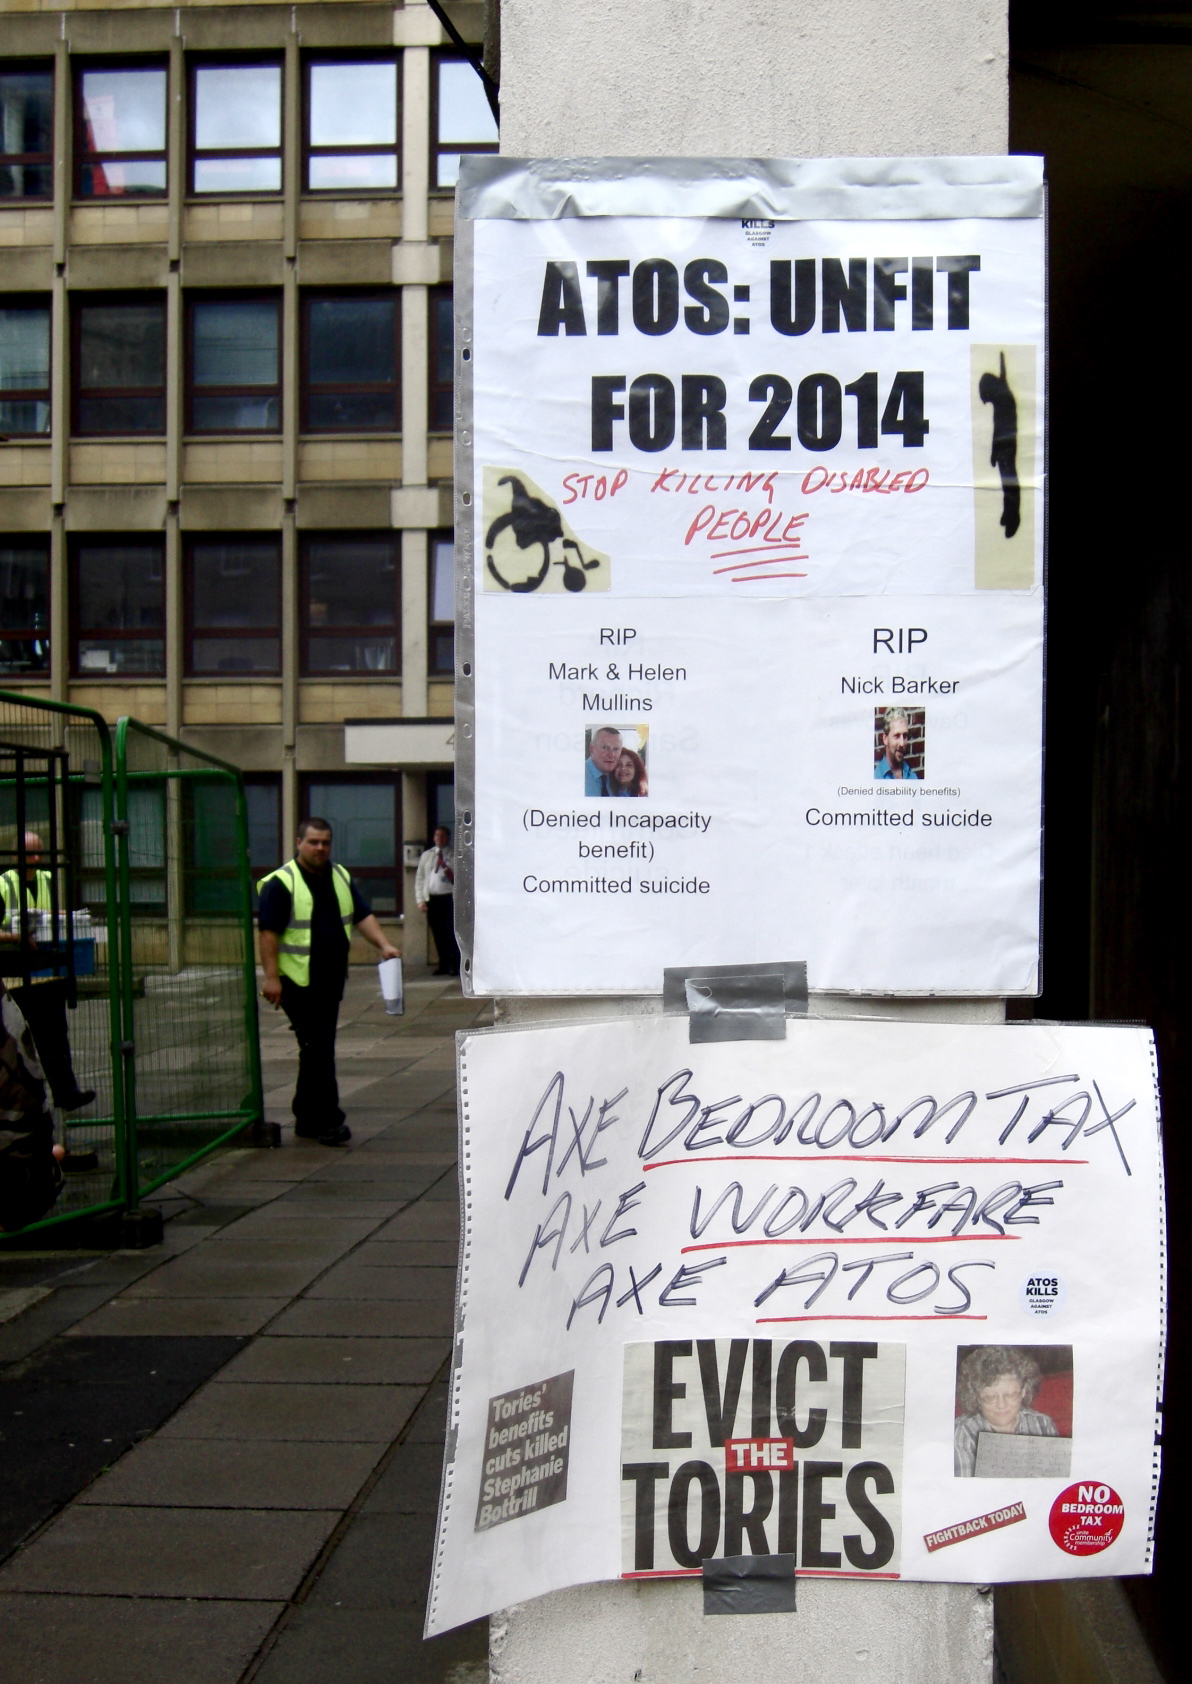 KILLS
GLASGOW
AGAINST
ATOS
ATOS: UNFIT
FOR 2014
STOP KILLING DISABLED
PEOPLE
RIP
Mark & Helen
Mullins
(Denied Incapacity
benefit)
Committed suicide
RIP
Nick Barker
(Denied disability benefits)
Committed suicide
4
AXE BEDROOM TAX
AXE WORKFARE
AXE ATOS
ATOS
KILLS
GLASGOW
AGAINST
ATOS
Tories'
benefits
cuts killed
Stephanie
Bottrill
EVICT
THE
TORIES
FIGHTBACK TODAY
NO
BEDROOM
TAX
unite
Community
membership